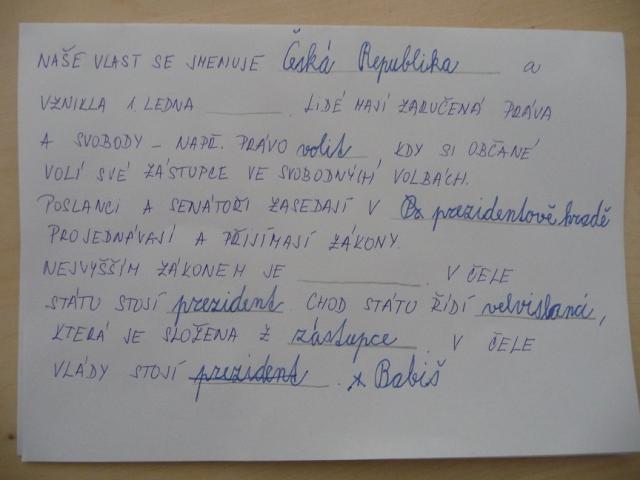 NAŠE VLAST SE JMENUJE Česká Republika a
VZNIKLA 1. LEDNA ________. LIDÉ MAJÍ ZARUČENÁ PRÁVA
A SVOBODY – NAPŘ. PRÁVO volit, KDY SI OBČANÉ
VOLÍ SVÉ ZÁSTUPCE VE SVOBODNÝCH VOLBÁCH.
POSLANCI A SENÁTOŘI ZASEDAJÍ V prezidentově hradě
PROJEDNÁVAJÍ A PŘIJÍMAJÍ ZÁKONY.
NEJVYŠŠÍM ZÁKONEM JE ____________. V ČELE
STÁTU STOJÍ prezident. CHOD STÁTU ŘÍDÍ velvislanci,
KTERÁ JE SLOŽENA Z zástupce. V ČELE
VLÁDY STOJÍ prezident. x Babiš